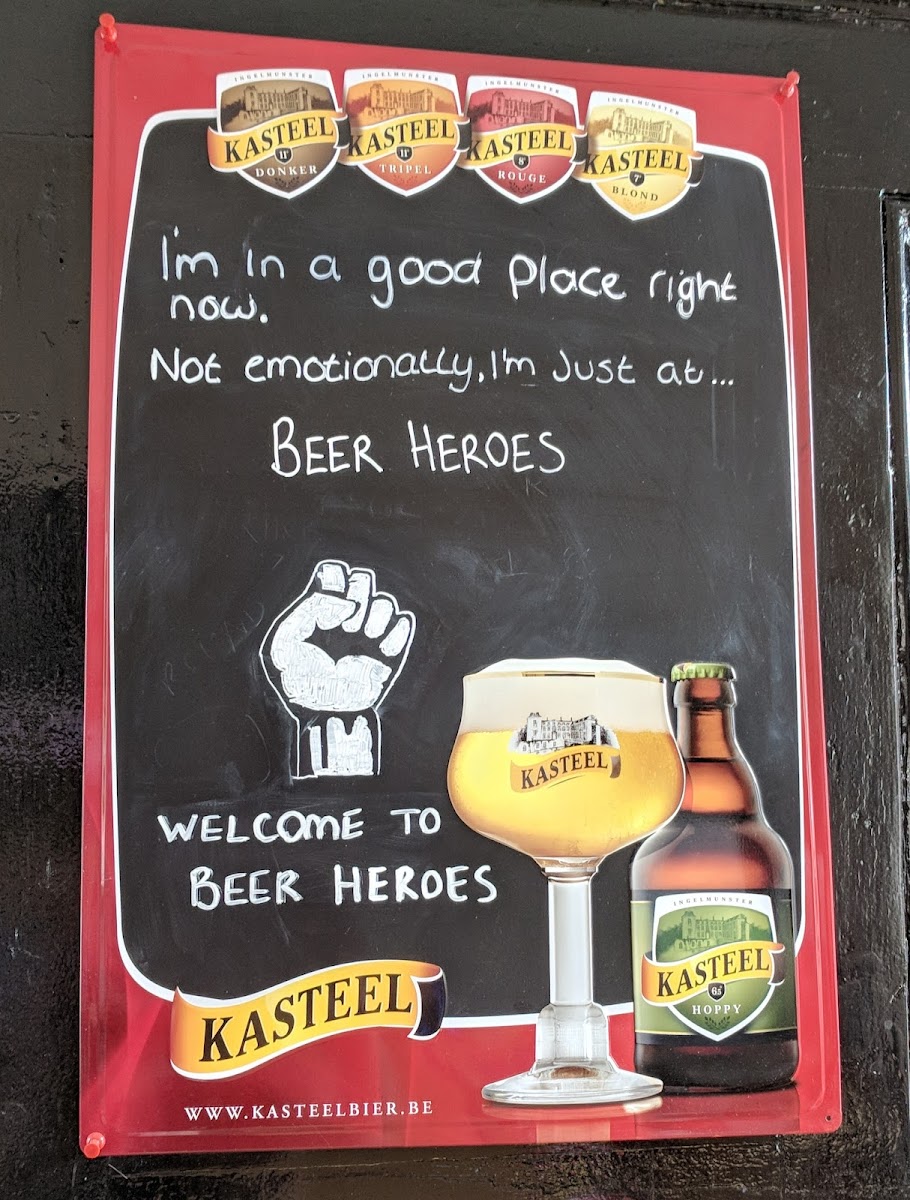 INGELMUNSTER
KASTEEL
11°
DONKER
INGELMUNSTER
KASTEEL
11°
TRIPEL
INGELMUNSTER
KASTEEL
8°
ROUGE
INGELMUNSTER
KASTEEL
7°
BLOND
I'm in a good place right
now.
Not emotionally, I'm just at...
BEER HEROES
KASTEEL
WELCOME TO
BEER HEROES
INGELMUNSTER
KASTEEL
6.5°
HOPPY
KASTEEL
WWW.KASTEELBIER.BE